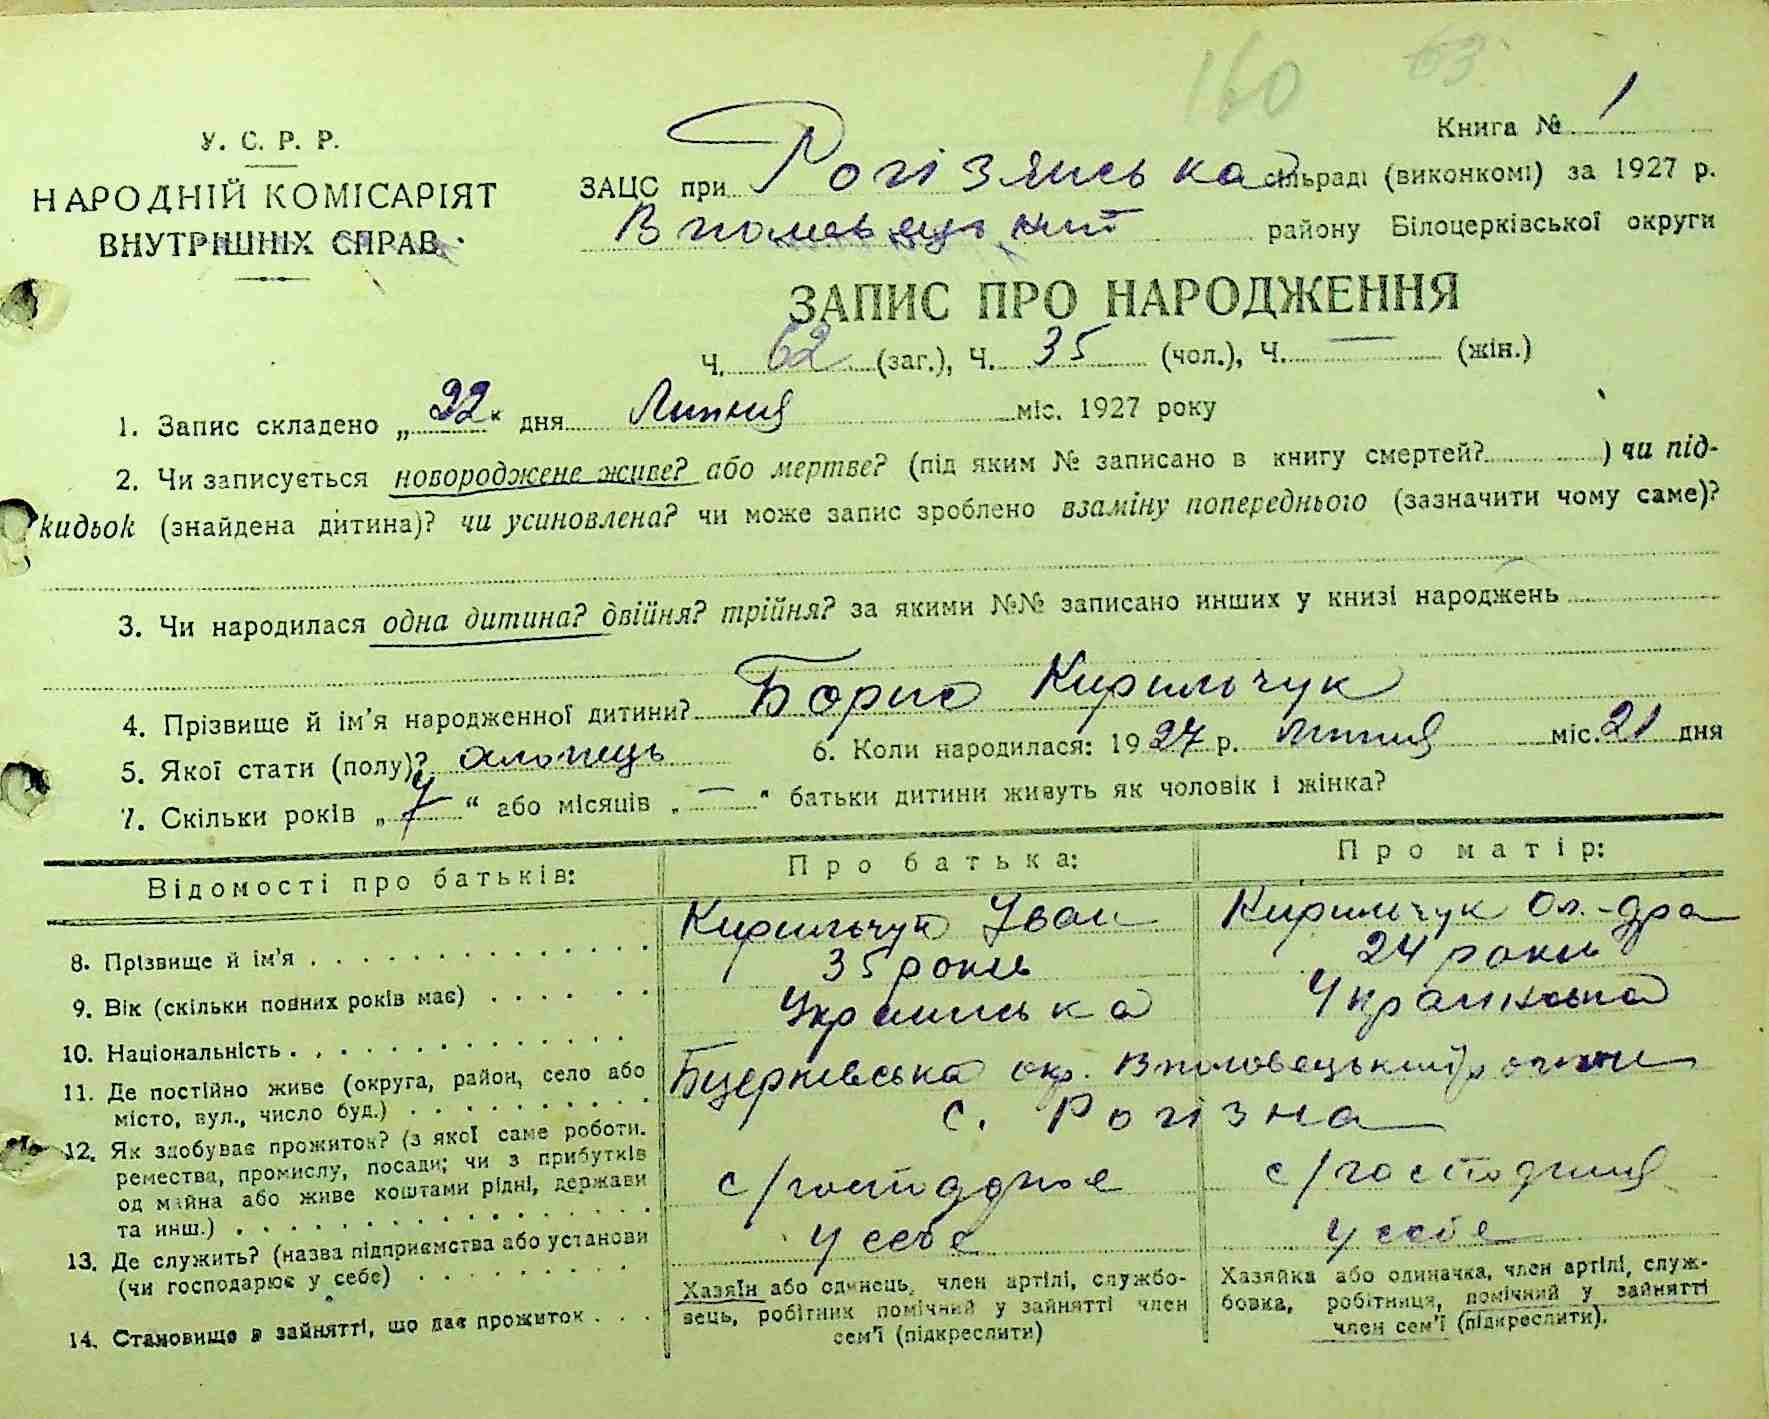 160 63
Книга № 1
У. С. Р. Р.
НАРОДНІЙ КОМІСАРІЯТ
ВНУТРІШНІХ СПРАВ
ЗАЦС при Рогізянська сільраді (виконкомі) за 1927 р.
району Білоцерківської округи
ЗАПИС ПРО НАРОДЖЕННЯ
Ч. 62 (заг.), Ч. 35 (чол.), Ч. — (жін.)
1. Запис складено „22“ дня Липня міс. 1927 року
2. Чи записується новороджене живе? або мертве? (під яким № записано в книгу смертей? ) чи під-
кидьок (знайдена дитина)? чи усиновлена? чи може запис зроблено взаміну попереднього (зазначити чому саме)?
3. Чи народилася одна дитина? двійня? трійня? за якими №№ записано инших у книзі народжень
4. Прізвище й ім’я народженної дитини? Борис Кирильчук
5. Якої стати (полу)? 6. Коли народилася: 1927 р. липня міс. 21 дня
7. Скільки років „7“ або місяців „—“ батьки дитини живуть як чоловік і жінка?
Відомості про батьків: Про батька: Про матір:
8. Прізвище й ім’я Кирильчук Іван Кирильчук Ол.-дра
9. Вік (скільки повних років має) 35 роки 24 роки
10. Національність Українська Українська
11. Де постійно живе (округа, район, село або
місто, вул., число буд.) Бцерківська окр. район
с. Рогізна
12. Як здобуває прожиток? (з якої саме роботи.
ремества, промислу, посади; чи з прибутків
од майна або живе коштами рідні, держави
та инш.) с/господарює с/господиня
13. Де служить? (назва підприємства або установи
(чи господарює у себе) у себе у себе
14. Становище в зайнятті, що дає прожиток
Хазяїн або одинець, член артілі, службо-
вець, робітник помічний у зайнятті член
сем’ї (підкреслити)
Хазяйка або одиначка, член артілі, служ-
бовка, робітниця, помічний у зайнятті
член сем’ї (підкреслити).